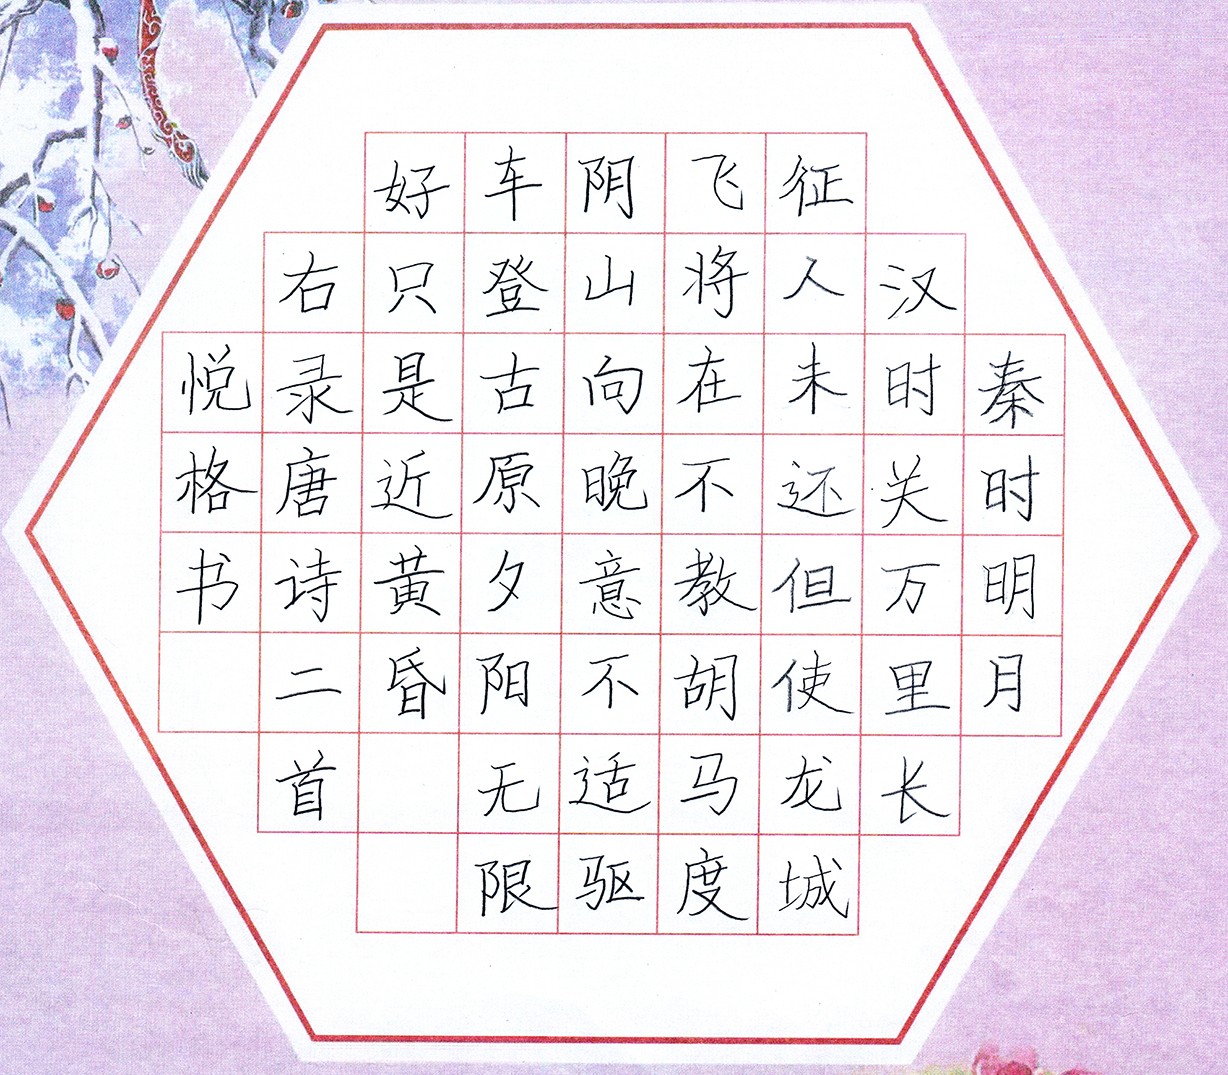 秦时明月
汉时关万里长
征人未还但使龙城
飞将在不教胡马度
阴山向晚意不适驱
车登古原夕阳无限
好只是近黄昏
右录唐诗二首
悦格书